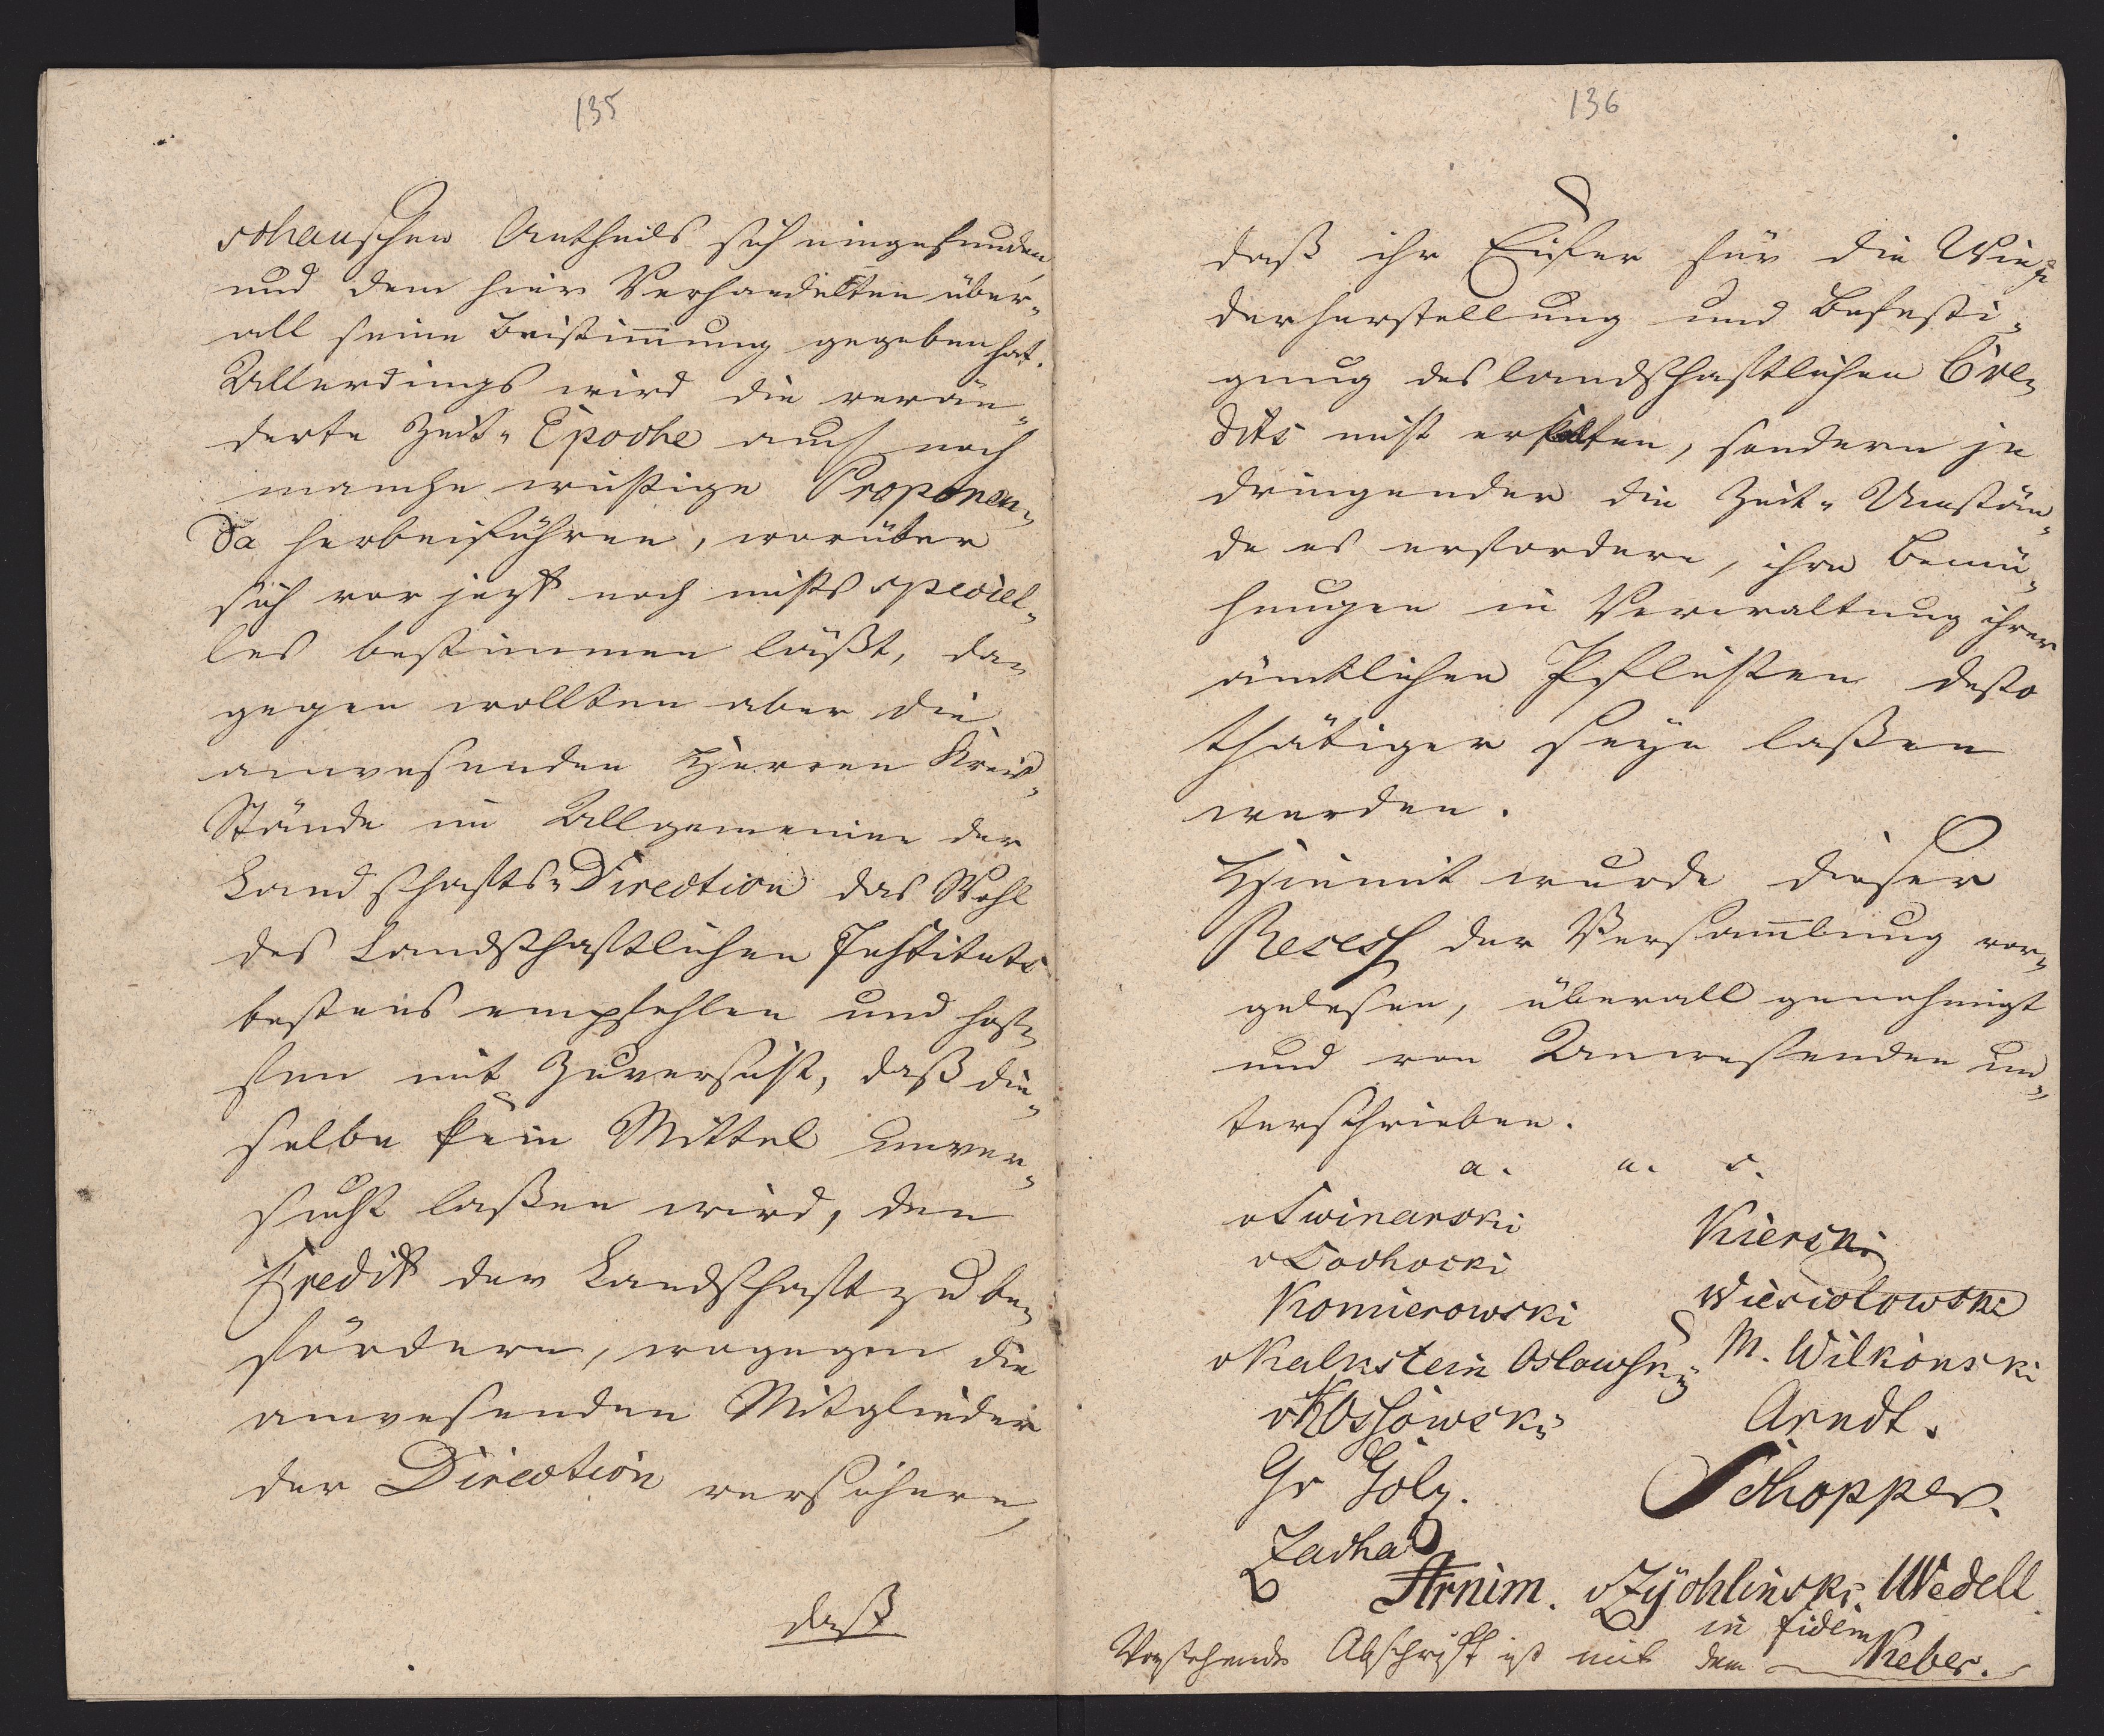 135
schauschen Antheils sich eingefunden,
und dem hier Verhandelten über„
all seine Beistim̅ung gegeben hat.
Allerdings wird die verän„
derte Zeit„Epoche auch noch
manche wichtige Proponen„
da herbeiführen, worüber
sich vor jezt noch nichts speciel„
les bestimmen läßt, da„
gegen wollten aber die
anwesenden Herren Kreis„
Stände im Allgemeinen der
Landschafts„Direction das Wohl
des Landschaftlichen Instituts
bestens empfehlen und hof„
fen mit Zuversicht, daß die„
selbe kein Mittel unver„
sucht laßen wird, den
Credit der Landschaft zu be„
fördern, wogegen die
anwesenden Mitglieder
der Direction versichern,
daß
136
daß ihr Eifer für die Wie„
derherstellung und Befesti„
gung des landschaftlichen Cre„
dits nicht erkalten, sondern je
dringender die Zeit„Umstän„
de es erfordern, ihre Bemü„
hungen in Verwaltung ihrer
ämtlichen Pflichten desto
thätiger seyn laßen
werden.
Hiemit wurde dieser
Recess der Versam̅lung vor„
gelesen, überall genehmigt
und von Anwesenden un„
terschrieben.
a. u. s.
v Swinarski Kierski
v Lochocki Wiesiolowski
Komierowski M. Wilkonski
v Kalkstein Oslowsky Arndt.
v Kossowski Schopper.
Gr Golz.
Zacha
Arnim. v Zychlinski. Wedell.
in fidem
Vorstehende Abschrift ist mit dem Keber.